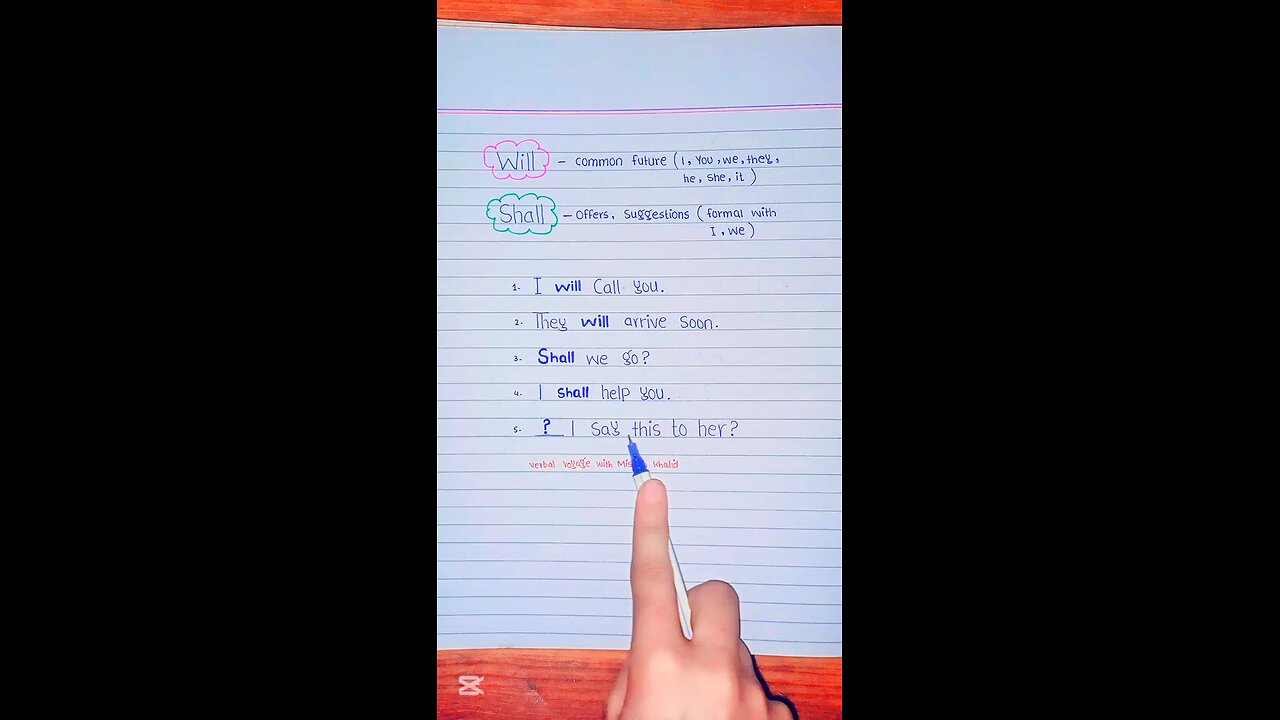 Will - Common future (I, You, we, they,
he, She, it)
Shall - Offers, Suggestions (formal with
I, we)
1. I will Call you.
2. They will arrive Soon.
3. Shall we go?
4. I shall help you.
5. ? I Say this to her?
Verbal Voyage with Khalid